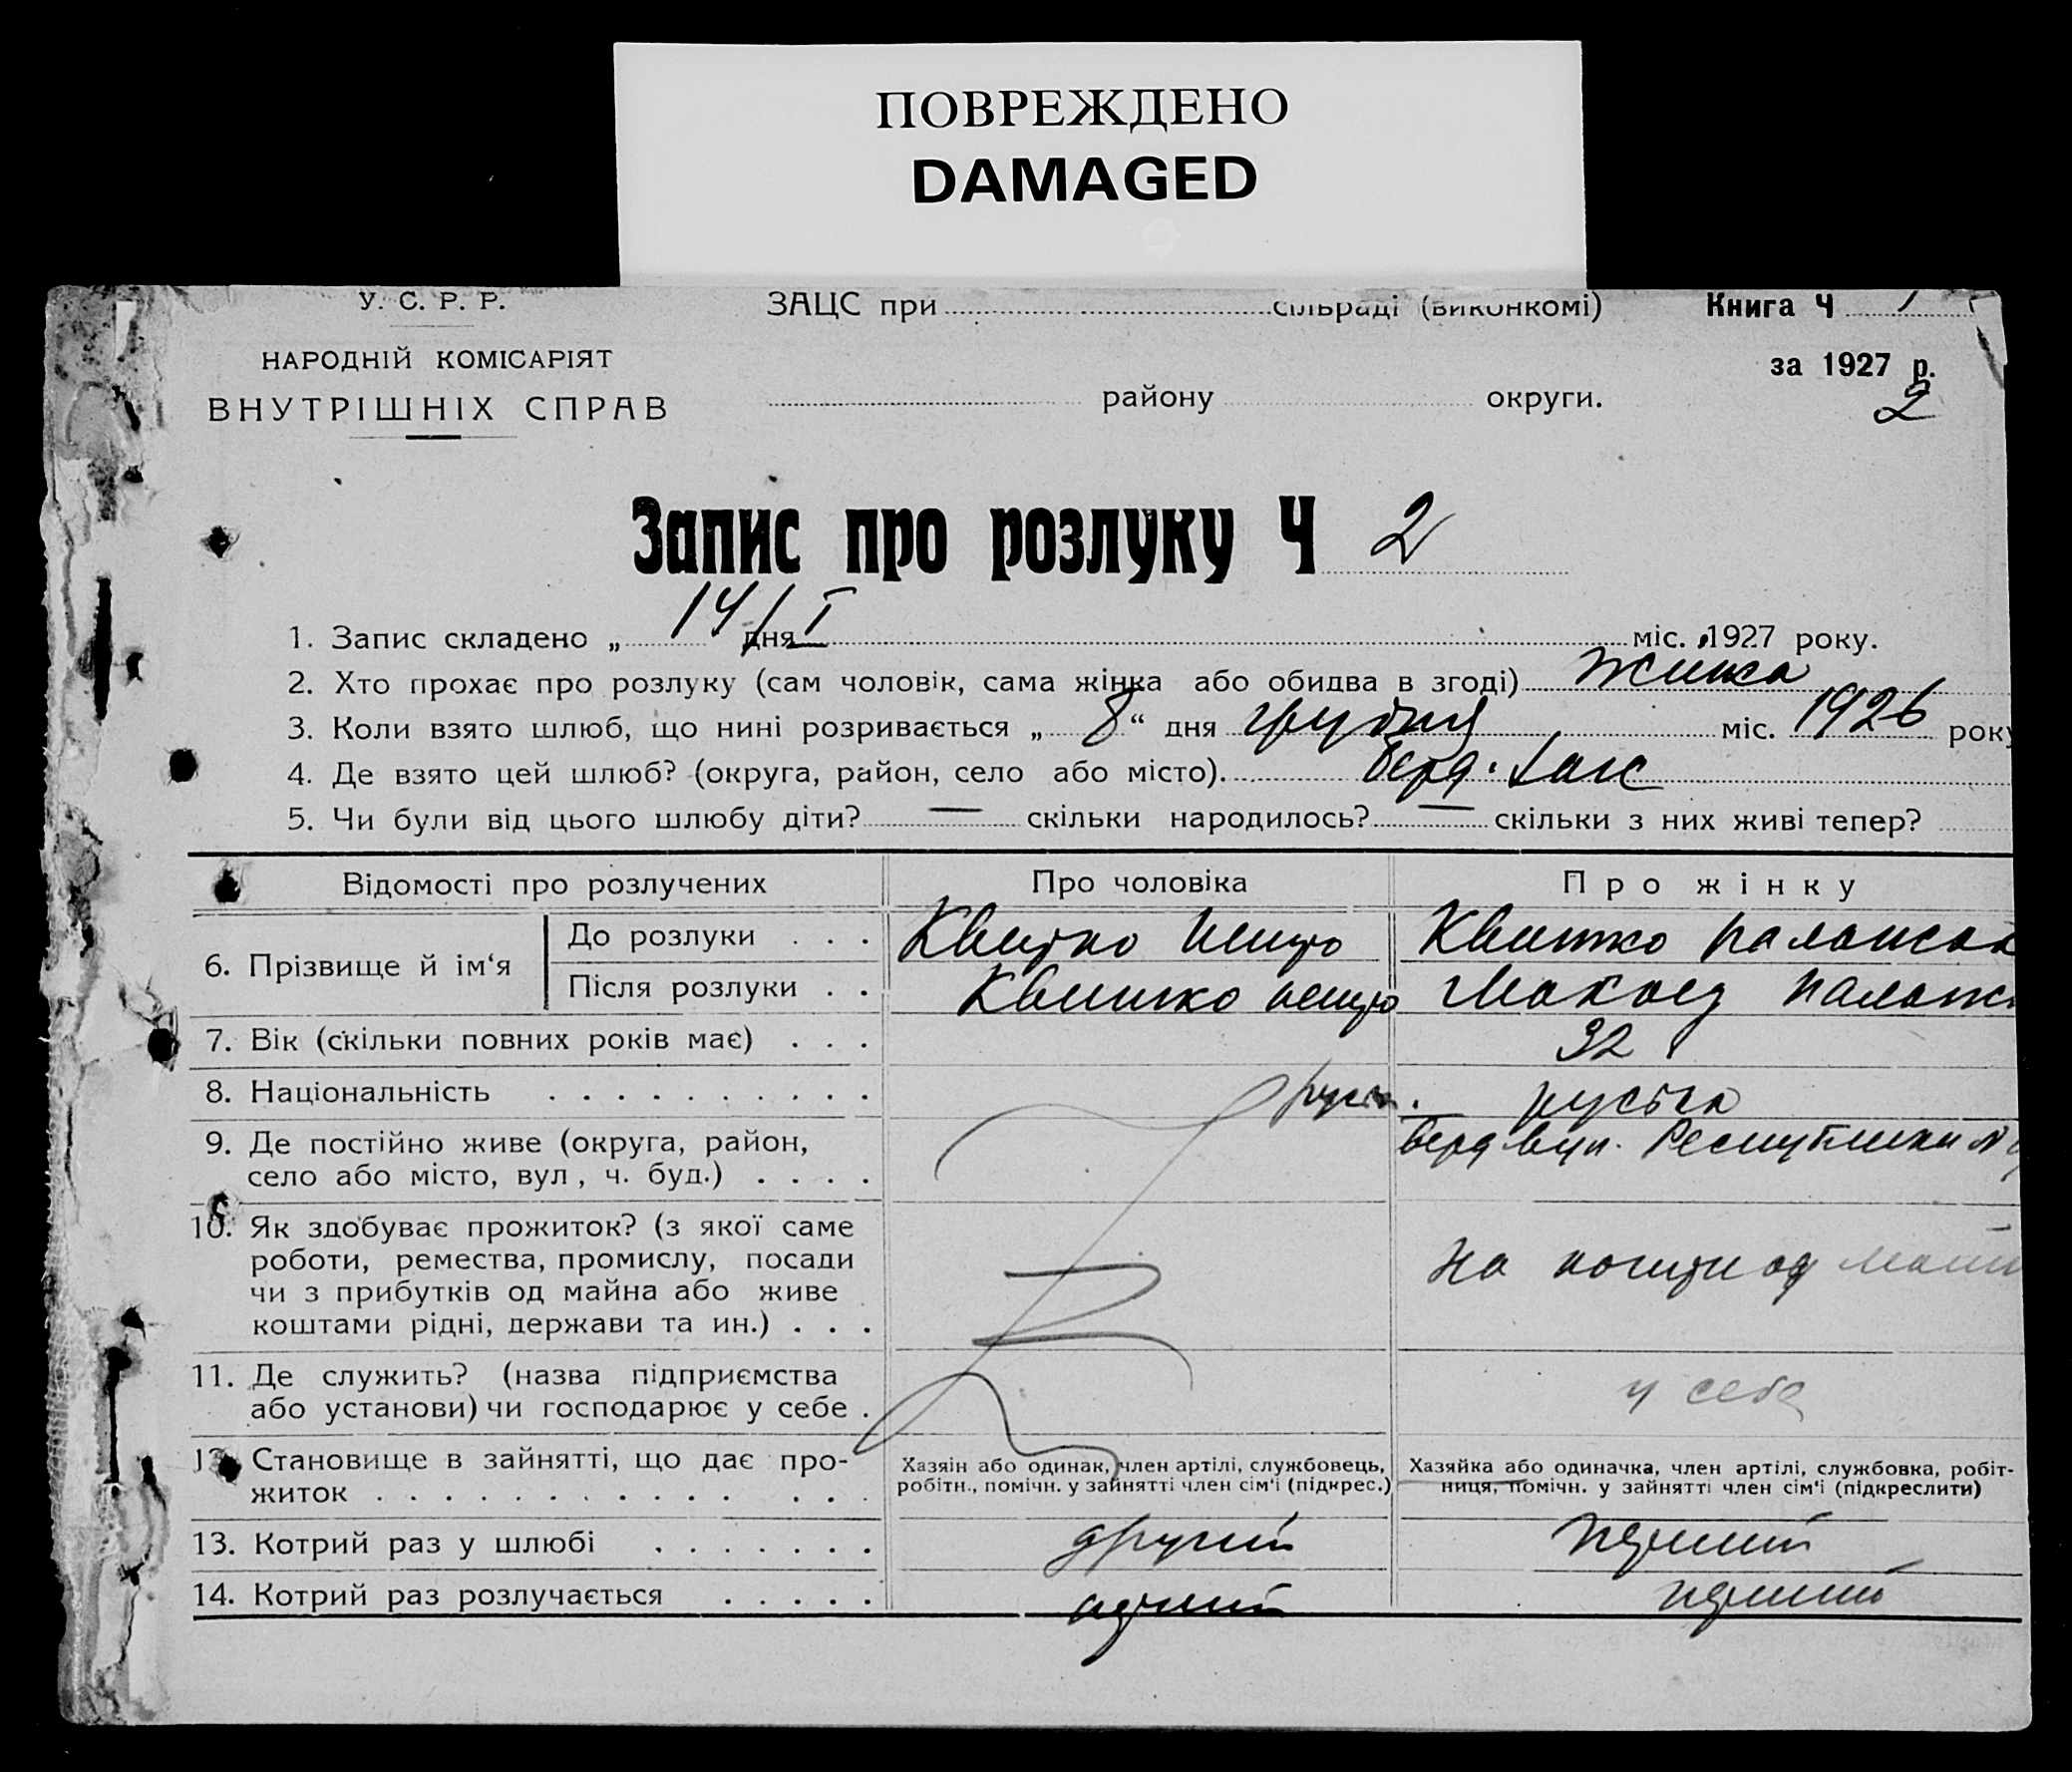 ПОВРЕЖДЕНО
DAMAGED
У. С. Р. Р.
ЗАЦС при сільраді (виконкомі)
Книга Ч 1
НАРОДНІЙ КОМІСАРІЯТ
за 1927 р.
ВНУТРІШНІХ СПРАВ
району округи.
2
Запис про розлуку Ч 2
1. Запис складено „ 14/I дня міс. 1927 року.
2. Хто прохає про розлуку (сам чоловік, сама жінка або обидва в згоді) жинка
3. Коли взято шлюб, що нині розривається „ 8 “ дня грудня міс. 1926 року
4. Де взято цей шлюб? (округа, район, село або місто). Берд. Загс
5. Чи були від цього шлюбу діти? — скільки народилось? — скільки з них живі тепер?
Відомості про розлучених Про чоловіка Про жінку
6. Прізвище й ім‘я
До розлуки . . . Квитко Петро Квитко
Після розлуки . . Квитко Петро
7. Вік (скільки повних років має) . . . 32
8. Національність . . . . . . . . . . русск. руська
9. Де постійно живе (округа, район, Берд вул. Республики №
село або місто, вул , ч. буд.) . . . .
10. Як здобуває прожиток? (з якої саме
роботи, ремества, промислу, посади На
чи з прибутків од майна або живе
коштами рідні, держави та ин.) . . .
11. Де служить? (назва підприємства у себе
або установи) чи господарює у себе .
12. Становище в зайнятті, що дає про-
житок . . . . . . . . . . . . . .
Хазяін або одинак, член артілі, службовець,
робітн., помічн. у зайнятті член сім‘і (підкрес.)
Хазяйка або одиначка, член артілі, службовка, робіт-
ниця, помічн. у зайнятті член сім‘і (підкреслити)
13. Котрий раз у шлюбі . . . . . . . другий перший
14. Котрий раз розлучається . . . . . перший перший